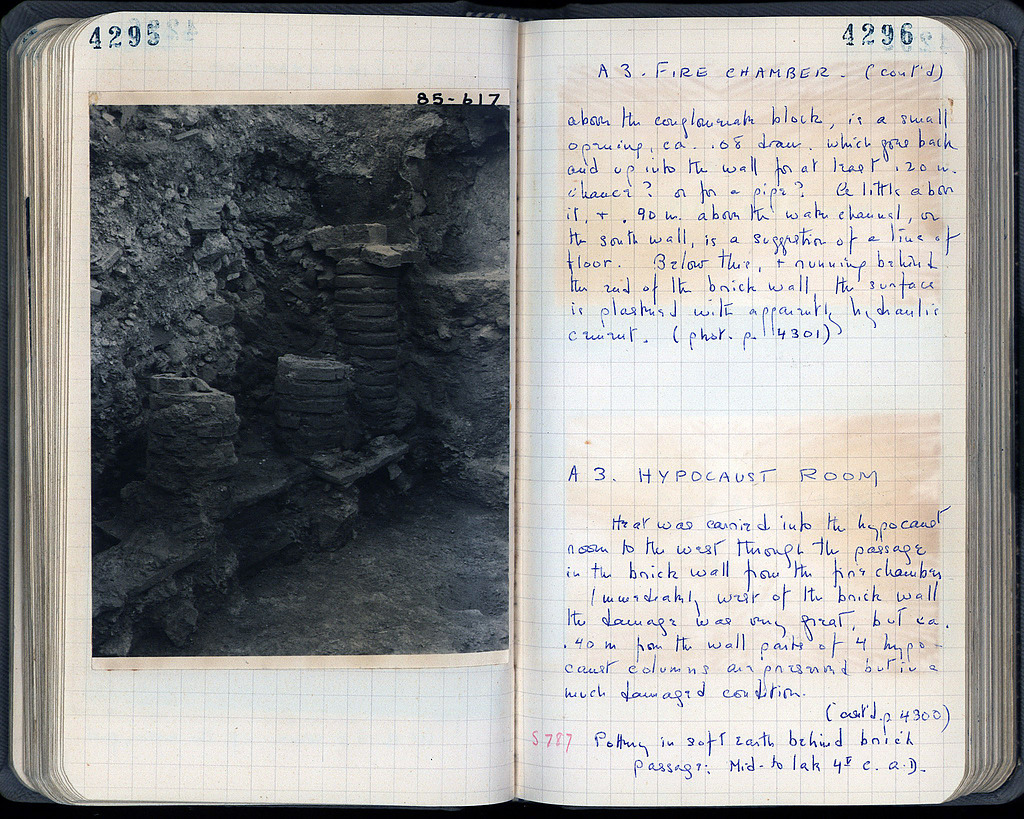 4295
85-617
4296
A 3. FIRE CHAMBER. (cont'd)
above the conglomerate block, is a small
opening, ca. .08 diam. which goes back
and up into the wall for at least 1.20 m.
chance? or for a pipe? A little above
it, + .90 m. above the water channel, on
the south wall, is a suggestion of a line of
floor. Below this, + running behind
the end of the brick wall the surface
is plastered with apparently hydraulic
cement. (phot. p. 4301)
A 3. HYPOCAUST ROOM
Heat was carried into the hypocaust
room to the west through the passage
in the brick wall from the fire chamber
Immediately west of the brick wall
the damage was very great, but ca.
.40 m from the wall parts of 4 hypo-
caust columns are preserved but in a
much damaged condition.
(cont'd. p. 4300)
S 787 Pottery in soft earth behind brick
passage: Mid- to late 4th c. A.D.